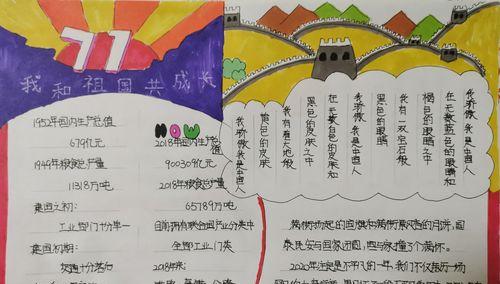 71
我和祖国共成长
1952年国内生产总值
679亿元
1949年粮食总产量
11318万吨
建国之初:
工业部门十分单一
建国初期:
交通十分落后
NOW
2018年国内生产总值
900309亿元
2018年粮食总产量
65789万吨
目前拥有联合国产业分类中
全部工业门类
2018年末:
我骄傲,我是中国人
在无数蓝色的眼睛和
褐色的眼睛之中
我有一双宝石般
黑色的眼睛
我骄傲,我是中国人
在无数白色的皮肤和
黑色的皮肤之中
我有着大地般
黄色的皮肤
我骄傲,我是中国人
满街扬起的国旗和满街飘香的月饼,国
泰民安与阖家团圆,国与家撞了个满怀。
2020年注定是不平凡的一年,我们不仅经历一场